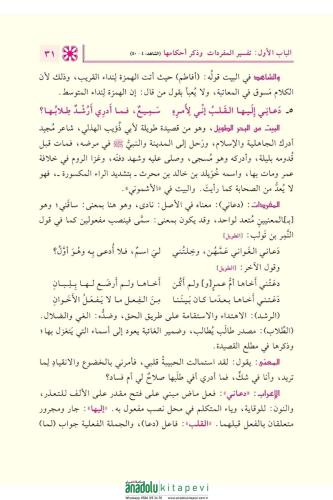 الباب الأول: تفسير المفردات وذكر أحكامها (الشاهد: ٤ - ٥٠)
٣١
والشاهد في البيت قوله: (أفاطم) حيث أتت الهمزة لنداء القريب، وذلك لأن
الكلام مسوق في المعاتبة، ولا يُعبأ بقول من قال: إن الهمزة لنداء المتوسط.
٥- دَعَانِي إِلَيهَا القَلْبُ إِنِّي لِأَمْرِهِ سَمِيعٌ، فَمَا أَدرِي أَرُشْدٌ طِلَابُهَا؟
البيت من البحر الطويل، وهو من قصيدة طويلة لأبي ذُؤيب الهذلي، شاعر مُجيد
أدرك الجاهلية والإسلام، ورحل إلى المدينة والنبيُّ ﷺ في مرضه، فمات قبل
قُدومه بليلة، وأدركه وهو مُسجى، وصلى عليه وشهد دفنه، وغزا الروم في خلافة
عمر ومات بها، واسمه خُوَيلد بن خالد بن محرث - بتشديد الراء المكسورة -، فهو
لا يُعدُّ من الصحابة كما رأيتَ. والبيت في «الأشموني».
المفردات: (دعاني): معناه في الأصل: نادى، وهو هنا بمعنى: ساقَنِي؛ وهو
[بـ]المعنيينِ مُتعدٍ لواحد، وقد يكون بمعنى: سمَّى فينصب مفعولين كما في قول
النَّمِر بن تَولَب: [الطويل]
دَعَانِي الغَوانِي عَمَّهُنَّ، وَخِلتُنِي لِيَ اسمٌ، فلا أُدعى بِهِ وهْوَ أوَّلُ؟
وقول الآخر: [الطويل]
دَعَتْنِي أخاها أمُّ عمرٍ[و] ولم أَكُن أخاها ولم أرضَع لها بِلِبانِ
دَعَتنِي أخاها بعدما كان بَينَنَا مِنَ الفِعلِ ما لا يَفعَلُ الأَخَوانِ
(الرشد): الاهتداء والاستقامة على طريق الحق، وضدُّه: الغي والضلال.
(الطِّلاب): مصدر طالَب يُطالب، وضمير الغائبة يعود إلى أسماء التي يَتغزل بها؛
وذكرها في مطلع القصيدة.
المعنى: يقول: لقد استمالت الحبيبةُ قلبي، فأمرني بالخضوع والانقيادِ لِما
تريد، وأنا في شكٍّ، فما أدري أفي طَلَبِها صلاحٌ لي أم فساد؟
الإعراب: «دعاني»: فعل ماض مبني على فتح مقدر على الألف للتعذر،
والنون: للوقاية، وياء المتكلم في محل نصب مفعول به. «إليها»: جار ومجرور
متعلقان بالفعل قبلهما. «القلب»: فاعل (دعا)، والجملة الفعلية جواب (لما)
anadolukitapevi
www.anadolukitapevi.com.tr